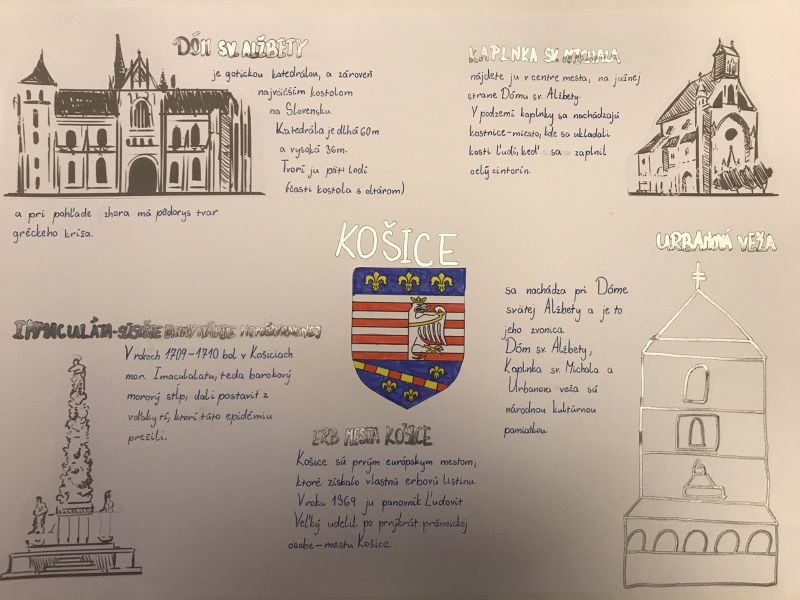 DÓM SV. ALŽBETY
je gotickou katedrálou, a zároveň
najväčším kostolom
na Slovensku.
Katedrála je dlhá 60m
a vysoká 36m.
Tvorí ju päť lodí
(časti kostola s oltárom)
a pri pohľade zhora má pôdorys tvar
gréckeho kríža.
KAPLNKA SV. MICHALA
nájdete ju v centre mesta, na južnej
strane Dómu sv. Alžbety.
V podzemí kaplnky sa nachádzajú
kostnice-miesto, kde sa ukladali
kosti ľudí, keď sa zaplnil
celý cintorín.
KOŠICE
URBANOVA VEŽA
sa nachádza pri Dóme
svätej Alžbety a je to
jeho zvonica
Dóm sv. Alžbety,
Kaplnka sv. Michala a
Urbanova veža sú
národnou kultúrnou
pamiatkou.
IMMACULÁTA-SÚSOŠIE PANNY MÁRIE NEPOŠKVRNENEJ
V rokoch 1709-1710 bol v Košiciach
mor. Imaculatu, teda barokový
morový stĺp, dali postaviť z
vďaky tí, ktorí túto epidémiu
prežili.
ERB MESTA KOŠICE
Košice sú prvým európskym mestom,
ktoré získalo vlastnú erbovú listinu.
V roku 1369 ju panovník Ľudovít
Veľký udelil po prvýkrát právnickej
osobe-mestu Košice.